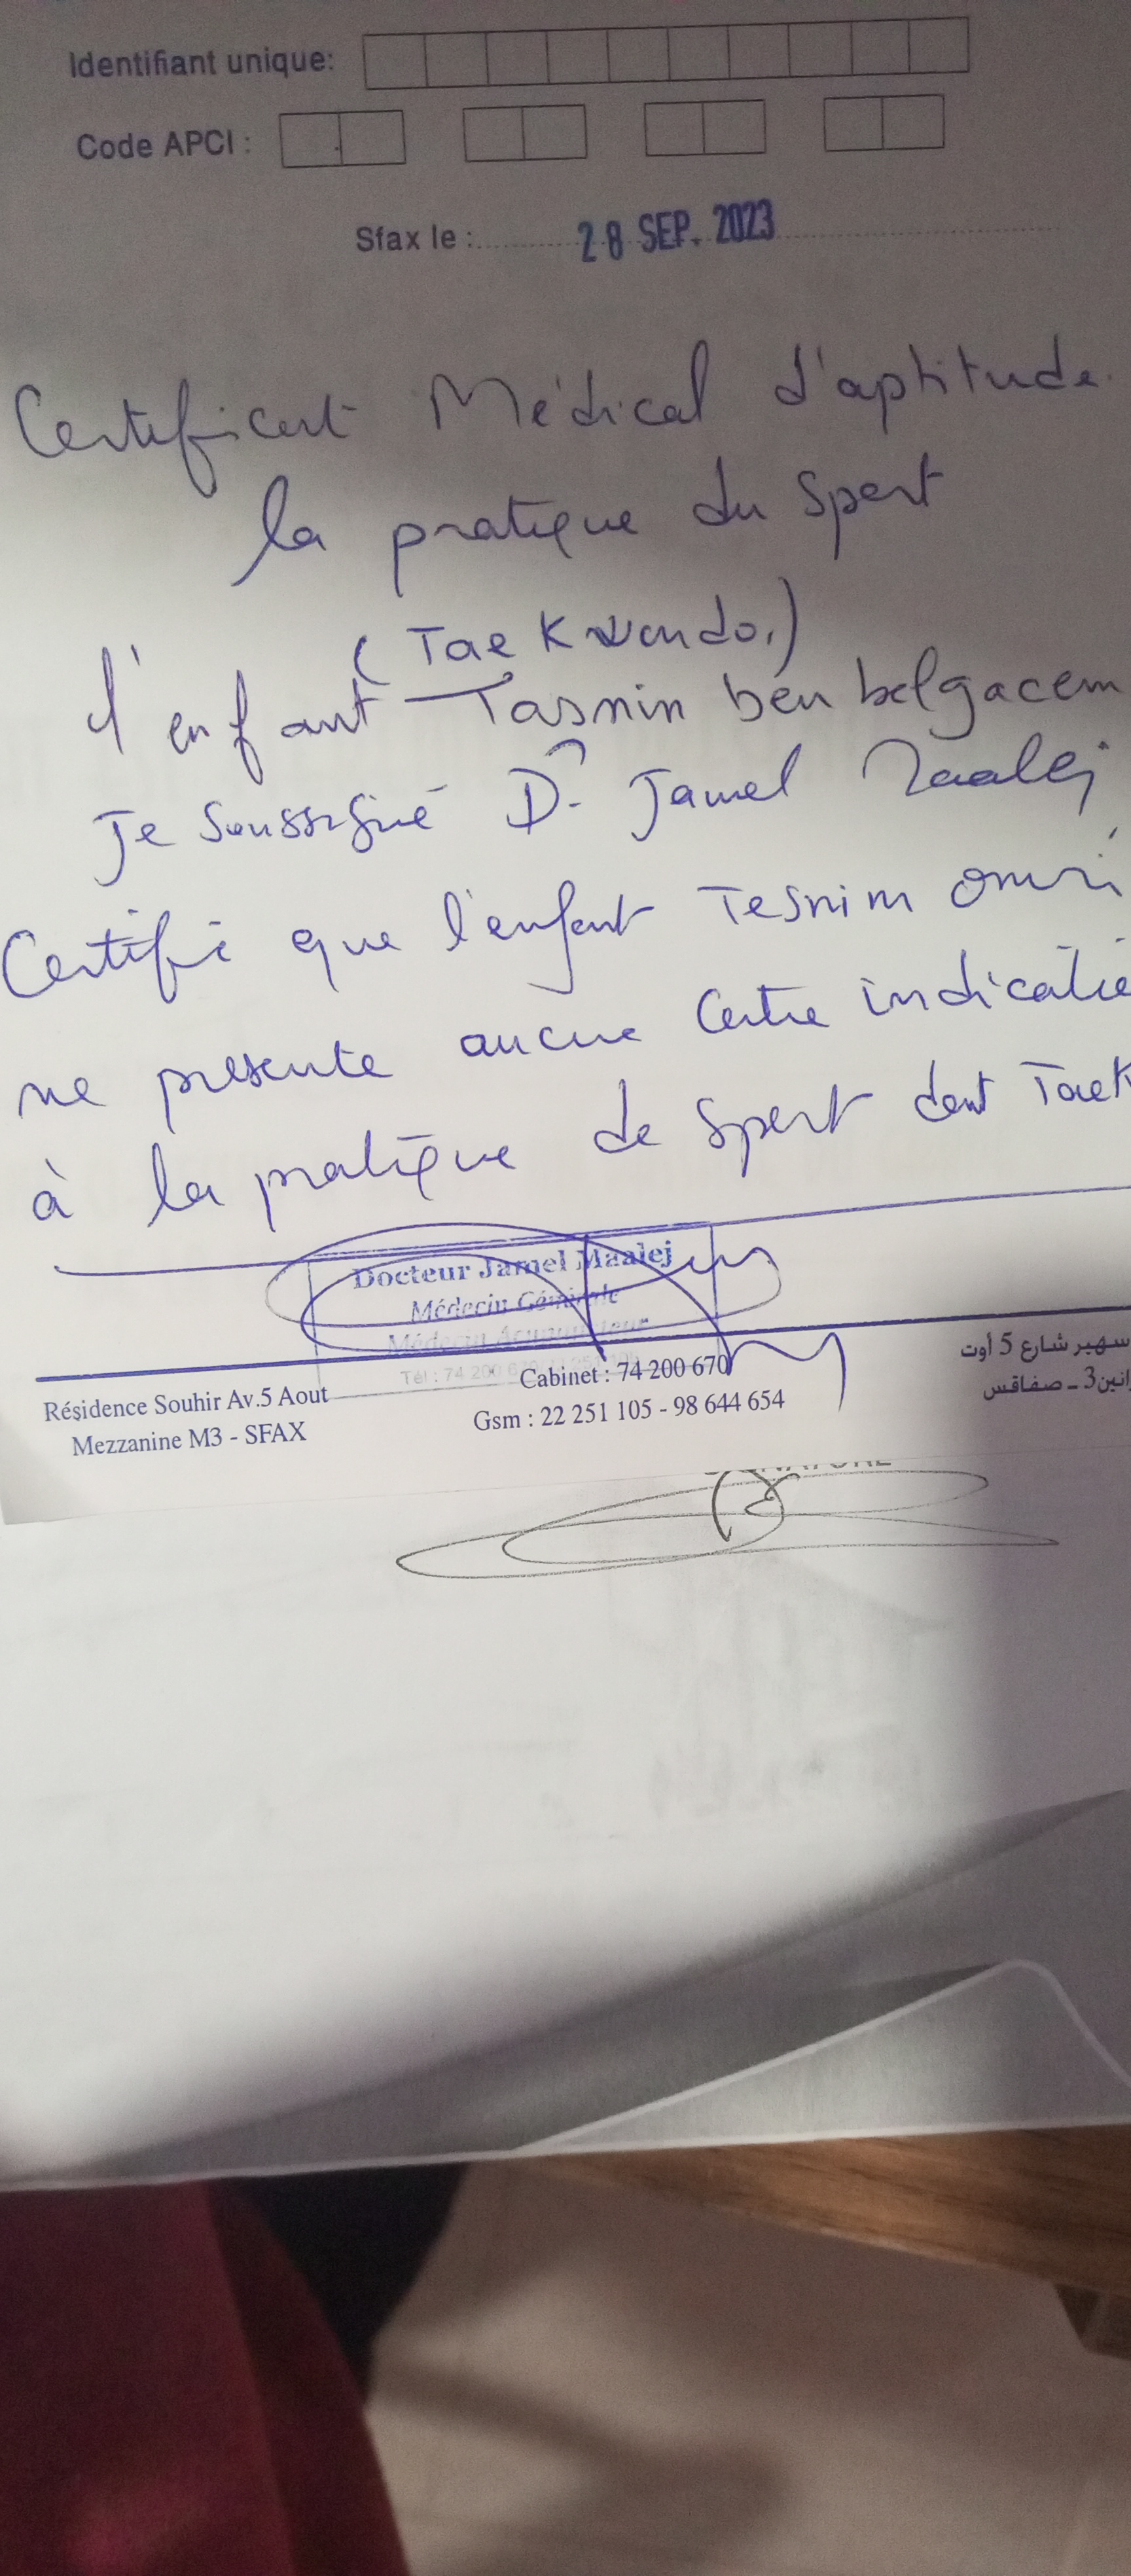 Identifiant unique:
Code APCI :
Sfax le : 28 SEP. 2023
Certificat Médical d'aptitude
la pratique du sport
(Tae Kwondo.)
l'enfant Tasnin ben belgacem
Je soussigné Dr Jamel Maalej
Certifie que l'enfant Tesnim omri
ne présente aucune contre indicatio
à la pratique de sport dont Taek
Docteur Jamel Maalej
Médecin Générale
Médecin Acupuncteur
Tél : 74 200 670
Résidence Souhir Av.5 Aout
Mezzanine M3 - SFAX
Cabinet : 74 200 670
Gsm : 22 251 105 - 98 644 654
سهير شارع 5 أوت
انين3 ـ صفاقس